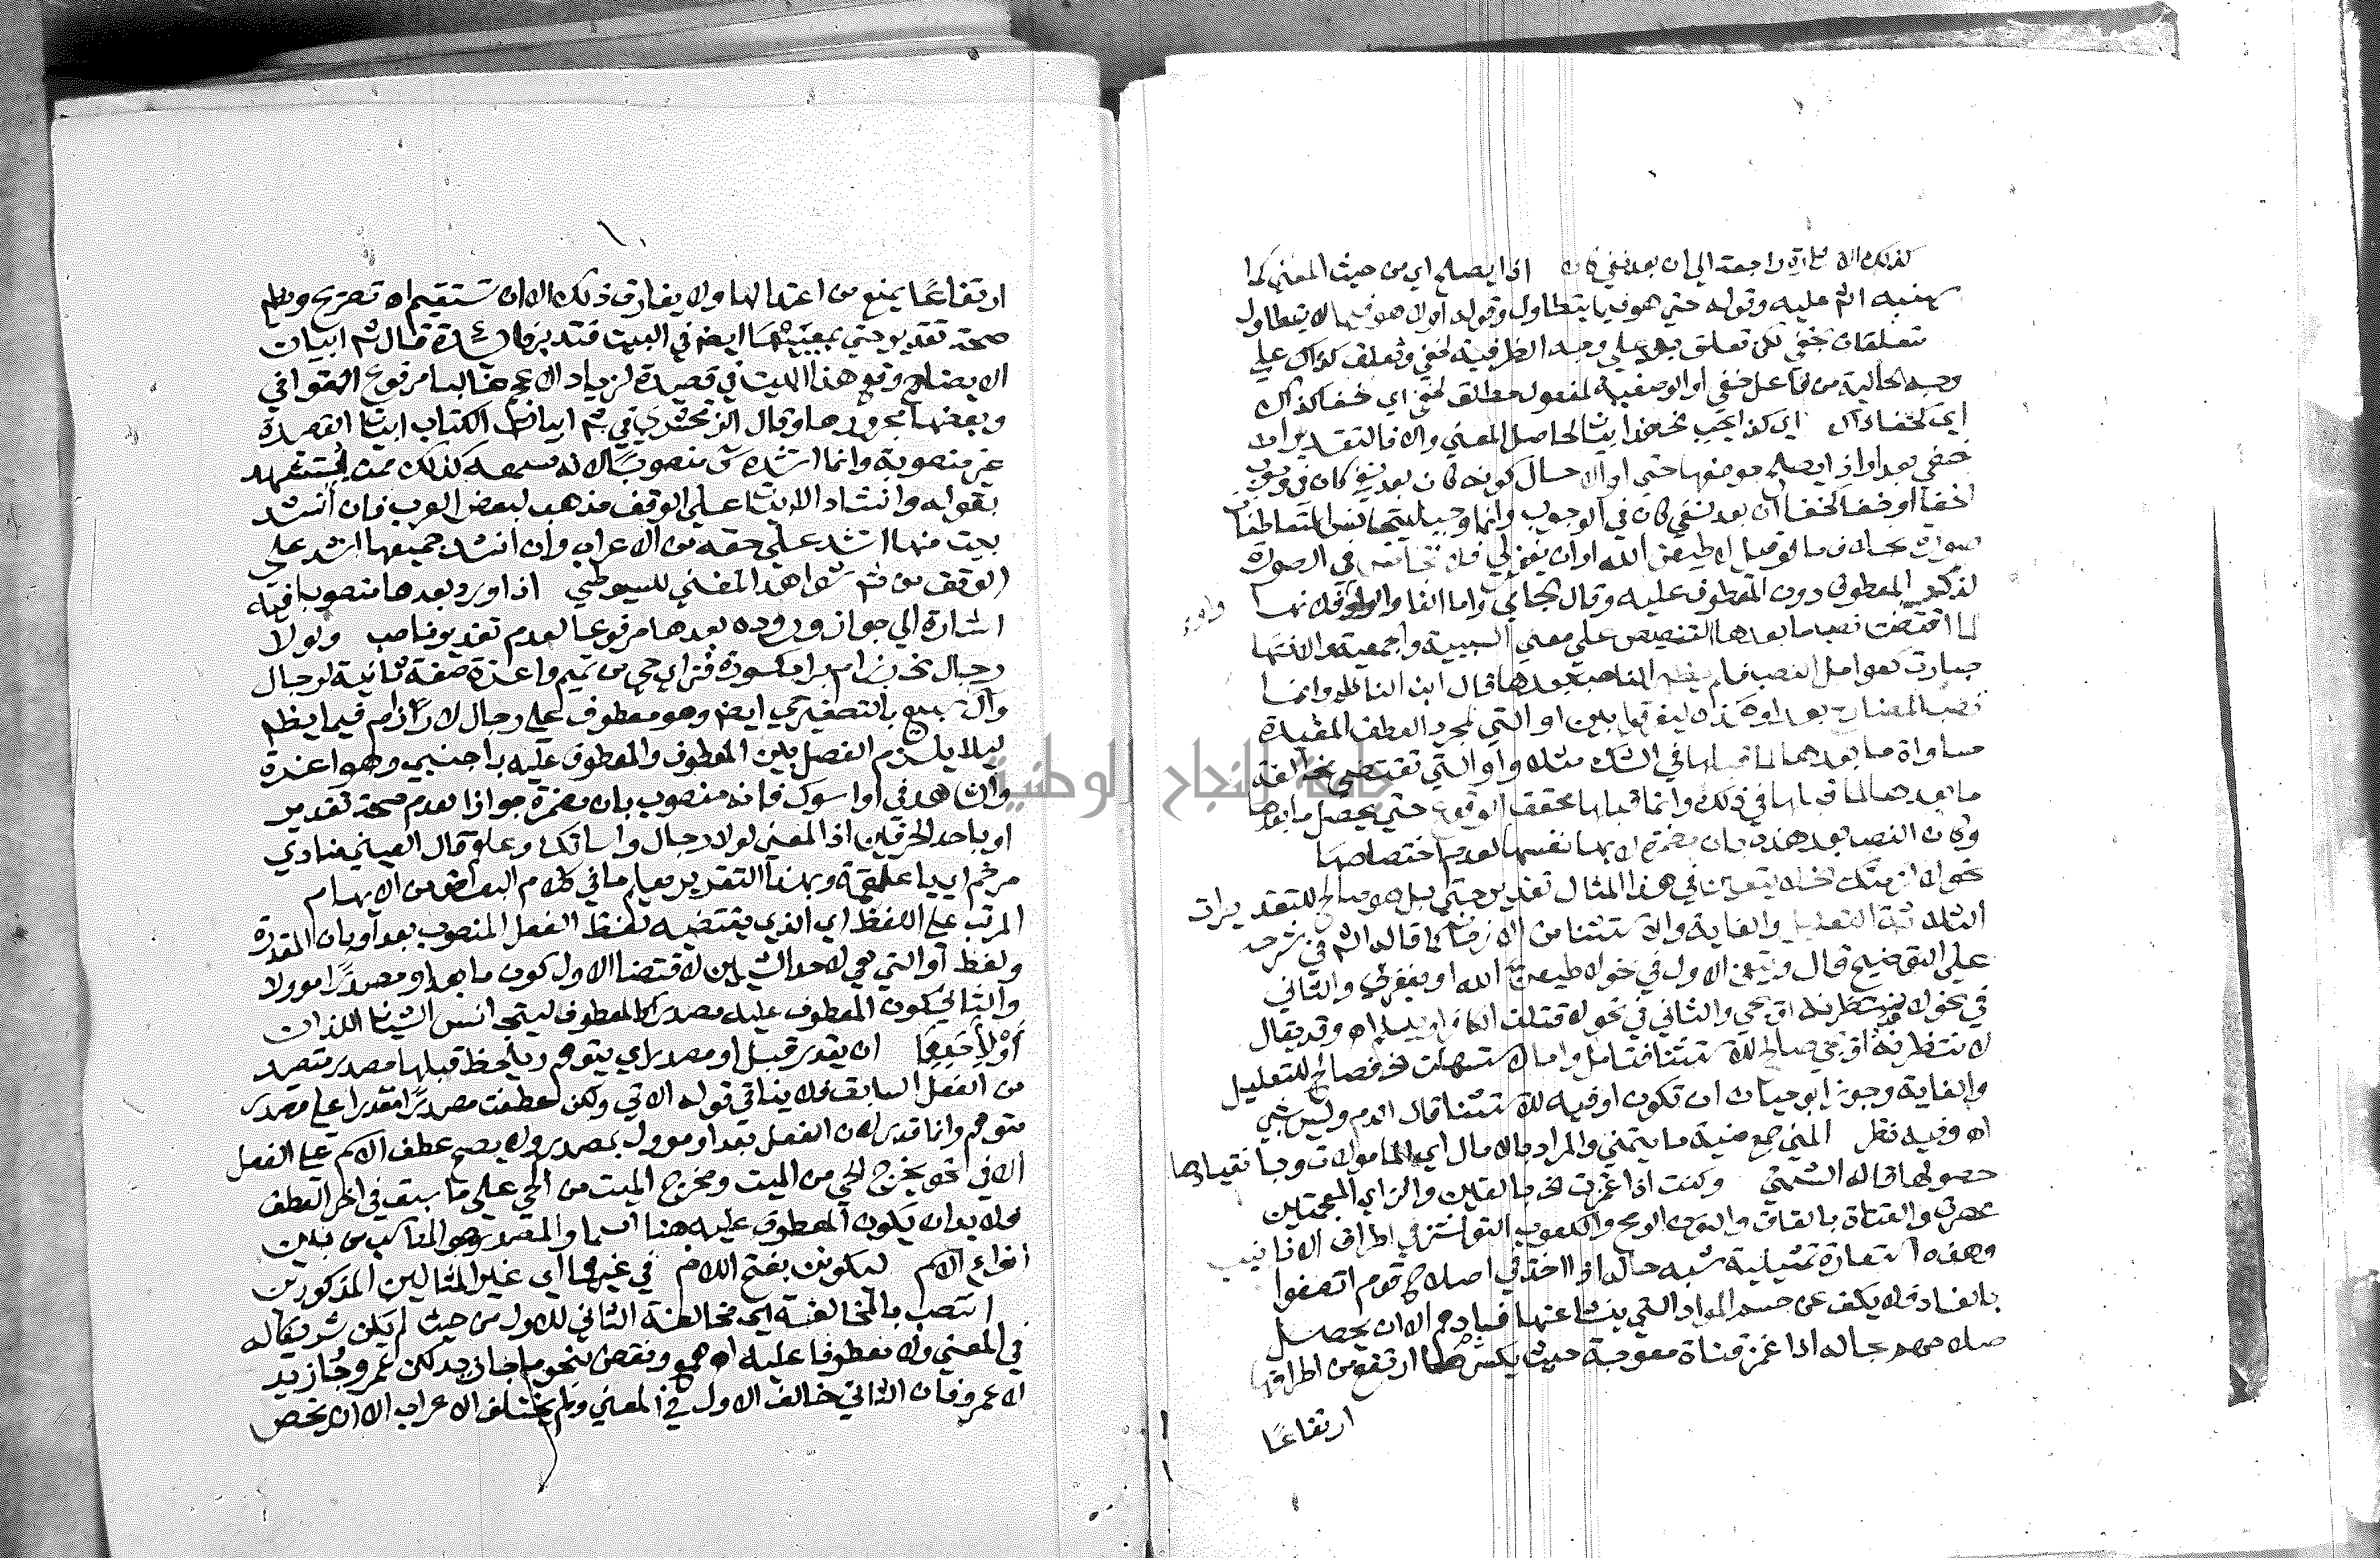 كذلك الاشارة راجعة الي ان بعد نفي كان اذا يصلح اي من حيث المعني كما
ينبه الش عليه وقوله حتي هو فيما يتطاول وقوله او الا هو فيما لا يتطاول
متعلقات بخفي لكن تعلق بعد علي وجه الظرفية لخفي وتعلق كذاك علي
وجه الحالية من فاعل خفي او الوصفية لمفعول مطلق لخفي اي خفا كذاك
اي كخفا ذاك اي كذا يجب هذا بيان لحاصل المعني والا فالتقدير ان
خفي بعد او اذا يصلح موضعها حتي او الا حال كونه كان بعد نفي كان في وجوب
اخفا او خفا كخفا ان بعد نفي كان في الوجوب وانما وجب ليتجانس المتعاطفان
صورة بخلاف ما لو قيل لاطيعن الله او ان يغفر لي فلا تجانس في الصورة
لذكر المعطوف دون المعطوف عليه وقال واما الفا والواو فلانهما
لما اقتضت نصب ما بعدها التنصيص علي معني السببية والجمعية والانتها
صارت كعوامل النصب فلم يظهر الناصب بعدها قال ابن الناظم وانما
نصب المضارع بعد او هذه ليفرقوا بين او التي لمجرد العطف المفيدة
مساواة ما بعدها لما قبلها في الشك مثلا واو التي تقتضي مخالفة
ما بعدها لما قبلها في ذلك وانما قبلها محقق الوقوع حتي يحصل ما بعدها
وكان النصب بعد هذه بان مضمرة لا بها نفسها لعدم اختصاصها
نحو لالزمنك الخ لا يتعين في هذا المثال تقدير حتي بل هو صالح للتقديرات
الثلاثة التعليل والغاية والاستثنا من الازمان كما قاله الش في شرحه
علي التوضيح قال ويتعين الاول في نحو لاطيعن الله او يغفر لي والثاني
في نحو لانتظرنه او يجي والثاني في نحو لاقتلن الكافر او يسلم اه وقد يقال
لانتظرنه او يجي صالح للاستثنا فتامل واما لاستسهلن الخ فصالح للتعليل
والغاية وجوز ابو حيان ان تكون او فيه للاستثنا قال الدم وليس بشي
اه وفيه نظر المني جمع منية ما يتمني والمراد بالامال اي المامولات وبانقيادها
حصولها قاله الشمني وكنت اذا غمزت الخ بالغين والزاي المعجمتين
عصرت والقناة بالقاف والنون الرمح والكعوب النواشز في اطراف الانابيب
وهذه استعارة تمثيلية شبه حاله اذا اخذ في اصلاح قوم اتصفوا
بالفساد فلا يكف عن حسم المواد التي ينشا عنها فسادهم الا ان يحصل
صلاحهم بحاله اذا غمز قناة معوجة حيث يكسر ما ارتفع من اطرافها
ارتفاعا
ارتفاعًا يمنع من اعتدالها ولا يفارق ذلك الا ان تستقيم اه تصريح وعلم
صحة تقدير حتي بمعنييها ايضا في البيت فتدبر فائدة قال في شرح ابيات
الايضاح وقع هذا البيت في قصيدة لزياد الاعجم غالبها مرفوع القوافي
وبعضها مجرورها وقال الزمخشري في شرح ابيات الكتاب ابيات القصيدة
غير منصوبة وانما انشده س منصوبا لانه سمعه كذلك ممن يستشهد
بقوله وانشاد الابيات علي الوقف مذهب لبعض العرب فان انشد
بيت منها انشد علي حقه من الاعراب وان انشد جميعها انشد علي
الوقف من شرح شواهد المغني للسيوطي اذا ورد بعدها منصوب فيه
اشارة الي جواز وروده بعدها مرفوعا لعدم تقدير ناصب ولولا
رجال الخ رزام براء مكسورة فزاي حي من تميم واعزة صفة ثانية لرجال
وآل سبيع بالتصغير حي ايضا وهو معطوف علي رجال لا رزام فيما يظهر
ليلا يلزم الفصل بين المعطوف والمعطوف عليه باجنبي وهو اعزة
والشاهد في او اسوك فانه منصوب بان مضمرة جوازا لعدم صحة تقدير
او باحد الحرفين اذ المعني لولا رجال واساتك وعلقم قال العيني منادي
مرخم اي يا علقمة وبهذا التقدير يعلم ما في كلام البعض من الابهام
المرتب علي اللفظ اي الذي يقتضيه لفظ الفعل المنصوب بعد او بان المقدرة
ولفظ او التي هي لاحد الشيين لاقتضا الاول كون ما بعد او مصدرا مؤولا
والثاني كون المعطوف عليه مصدرا كالمعطوف ليتجانس الشيئان اللذان
او لاحدهما ان يقدر قبل او مصدر اي يتوهم ويلحظ قبلها مصدر متصيد
من الفعل السابق فلا ينافي قوله الاتي ولكن عطفت مصدرًا مقدرا علي مصدر
متوهم وانما قدر لان الفعل بعد او مؤول بمصدر ولا يصح عطف الاسم علي الفعل
الا في نحو يخرج الحي من الميت ومخرج الميت من الحي علي ما سبق في اخر العطف
فلا بد ان يكون المعطوف عليه هنا اسما والمصدر هو المناسب من بين
انواع الاسم ليكونن بفتح اللام في غيرهما اي غير المثالين المذكورين
انتصب بالمخالفة اي مخالفة الثاني للاول من حيث لم يكن شريكا له
في المعني ولا معطوفا عليه اه همع ونقض بنحو ما جاني زيد لكن عمرو وجاء زيد
لا عمرو فان الثاني خالف الاول في المعني ولم يختلف الاعراب الا ان يخص